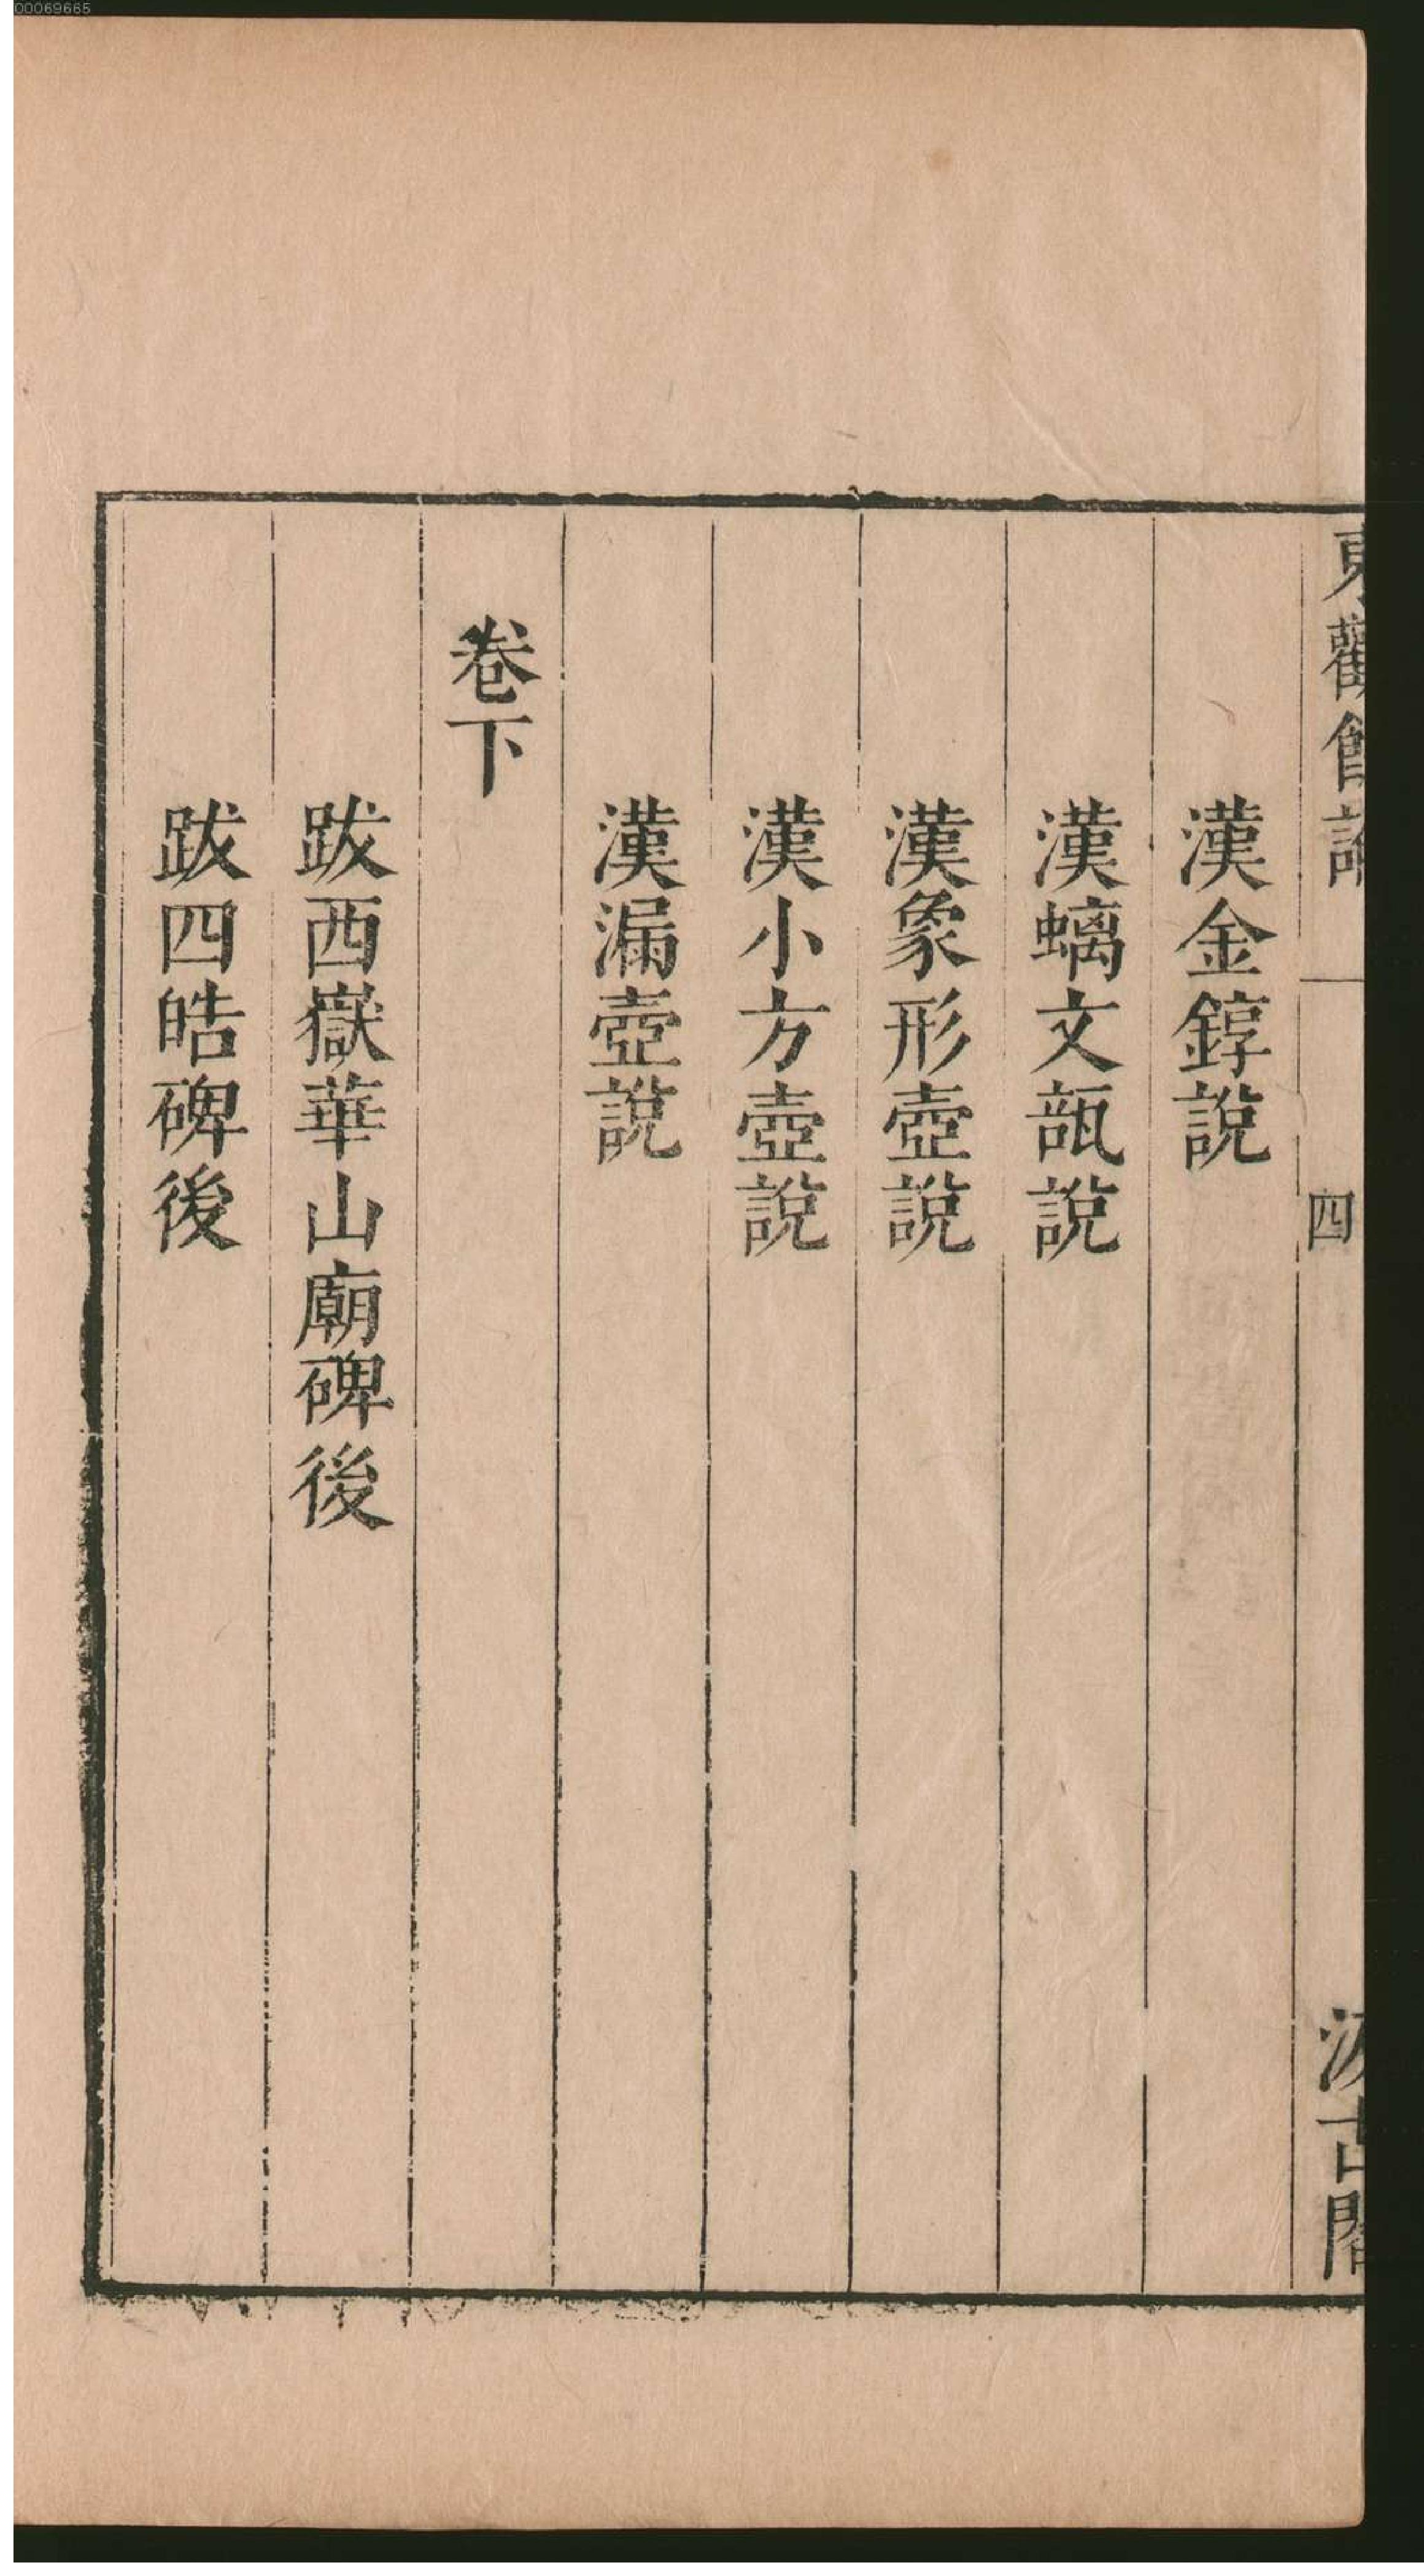 00069665
東觀餘論
四
汲古閣
漢金錞說
漢螭文瓿說
漢象形壺說
漢小方壺說
漢漏壺說
卷下
跋西嶽華山廟碑後
跋四皓碑後